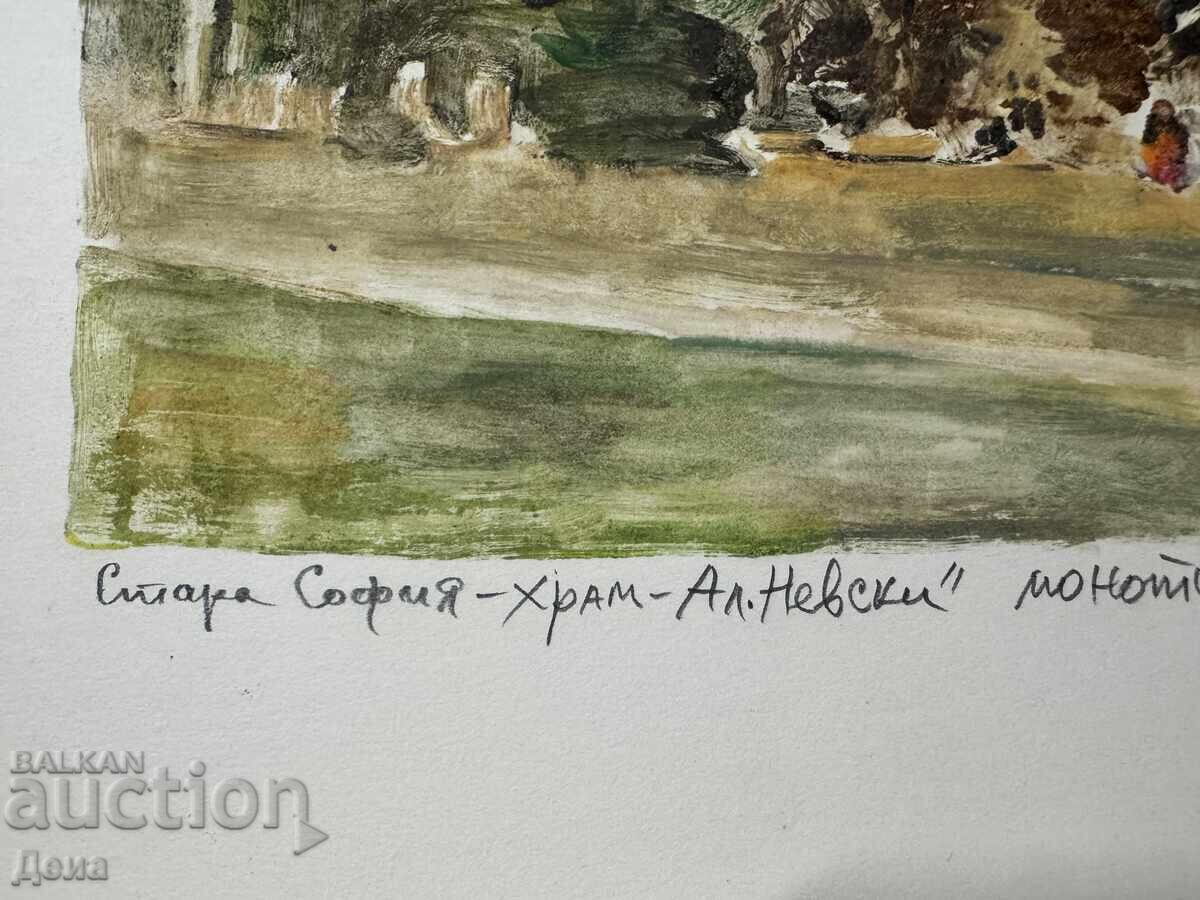 Стара София - Храм - Ал. Невски" монот
BALKAN
auction
Деиа